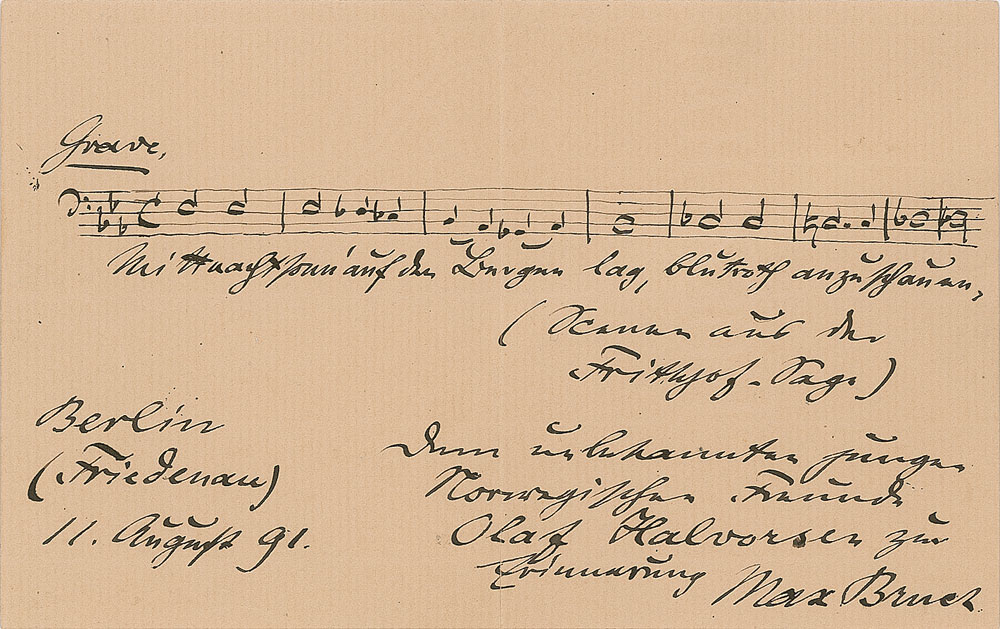 Grave,
Mitternachtsonn' auf den Bergen lag, blutroth anzuschauen,
(Scenen aus der
Frithjof-Sage)
Berlin
(Friedenau)
11. August 91.
Dem unbekannten jungen
Norwegischen Freunde
Olaf Halvorsen zur
Erinnerung
Max Bruch